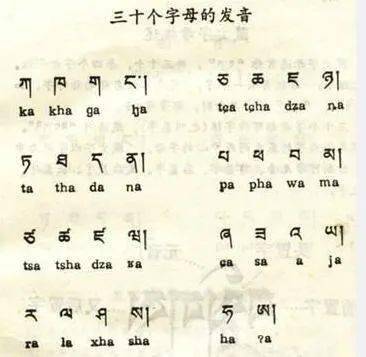 三十个字母的发音
ཀ ཁ ག ང་། ཅ ཆ ཇ ཉ།
ka kha ga ŋa tɕa tɕha dʑa ȵa
ཏ ཐ ད ན། པ ཕ བ མ།
ta tha da na pa pha wa ma
ཙ ཚ ཛ ཝ། ཞ ཟ འ ཡ།
tsa tsha dza ʁa ɕa sa a ja
ར ལ ཤ ས། ཧ ཨ།
ra la xha sha ha ʔa